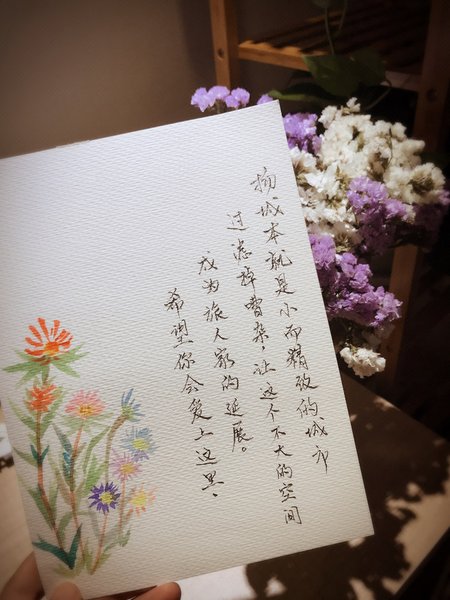 扬城本就是小而精致的城市
过滤掉嘈杂,让这个不大的空间
成为旅人家的延展。
希望你会爱上这里、